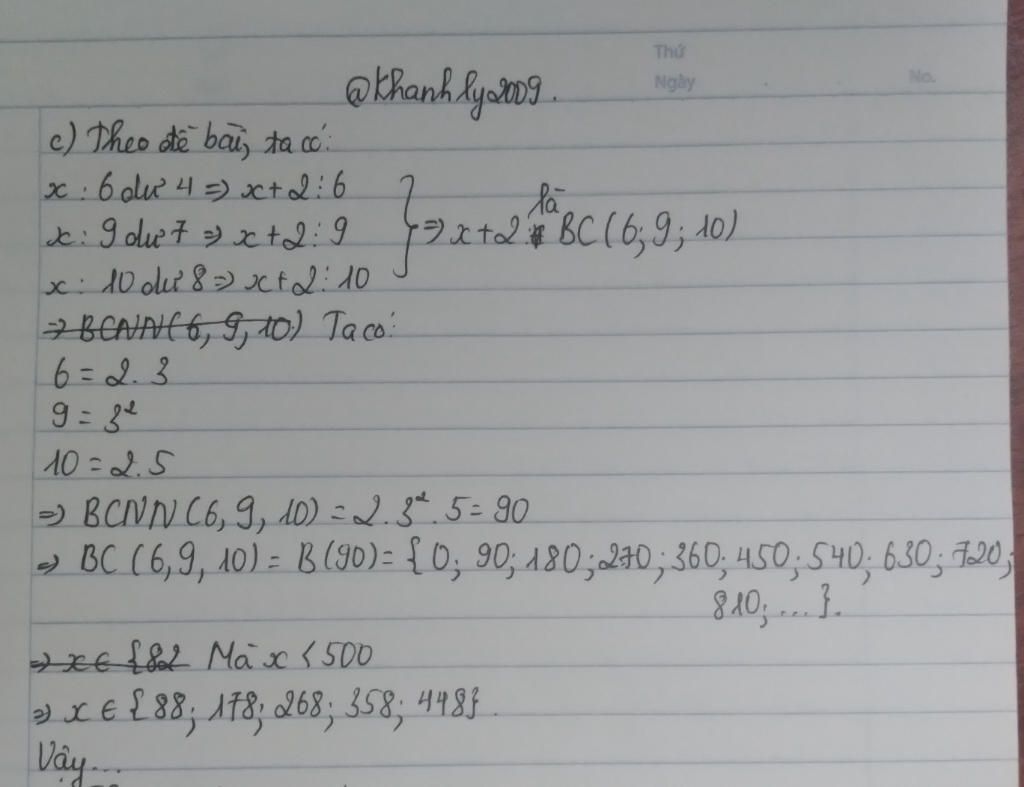 Thứ
Ngày
No.
@khanhly2009.
c) Theo đề bài, ta có:
x : 6 dư 4 => x+2 ⋮ 6
x : 9 dư 7 => x+2 ⋮ 9
x : 10 dư 8 => x+2 ⋮ 10
} => x+2 là BC(6; 9; 10)
=> BCNN(6, 9, 10) Ta có:
6 = 2.3
9 = 3²
10 = 2.5
=> BCNN(6, 9, 10) = 2.3².5 = 90
=> BC(6,9,10) = B(90) = {0; 90; 180; 270; 360; 450; 540; 630; 720;
810; ...}.
=> x ∈ {82 Mà x < 500
=> x ∈ {88; 178; 268; 358; 448}.
Vậy...